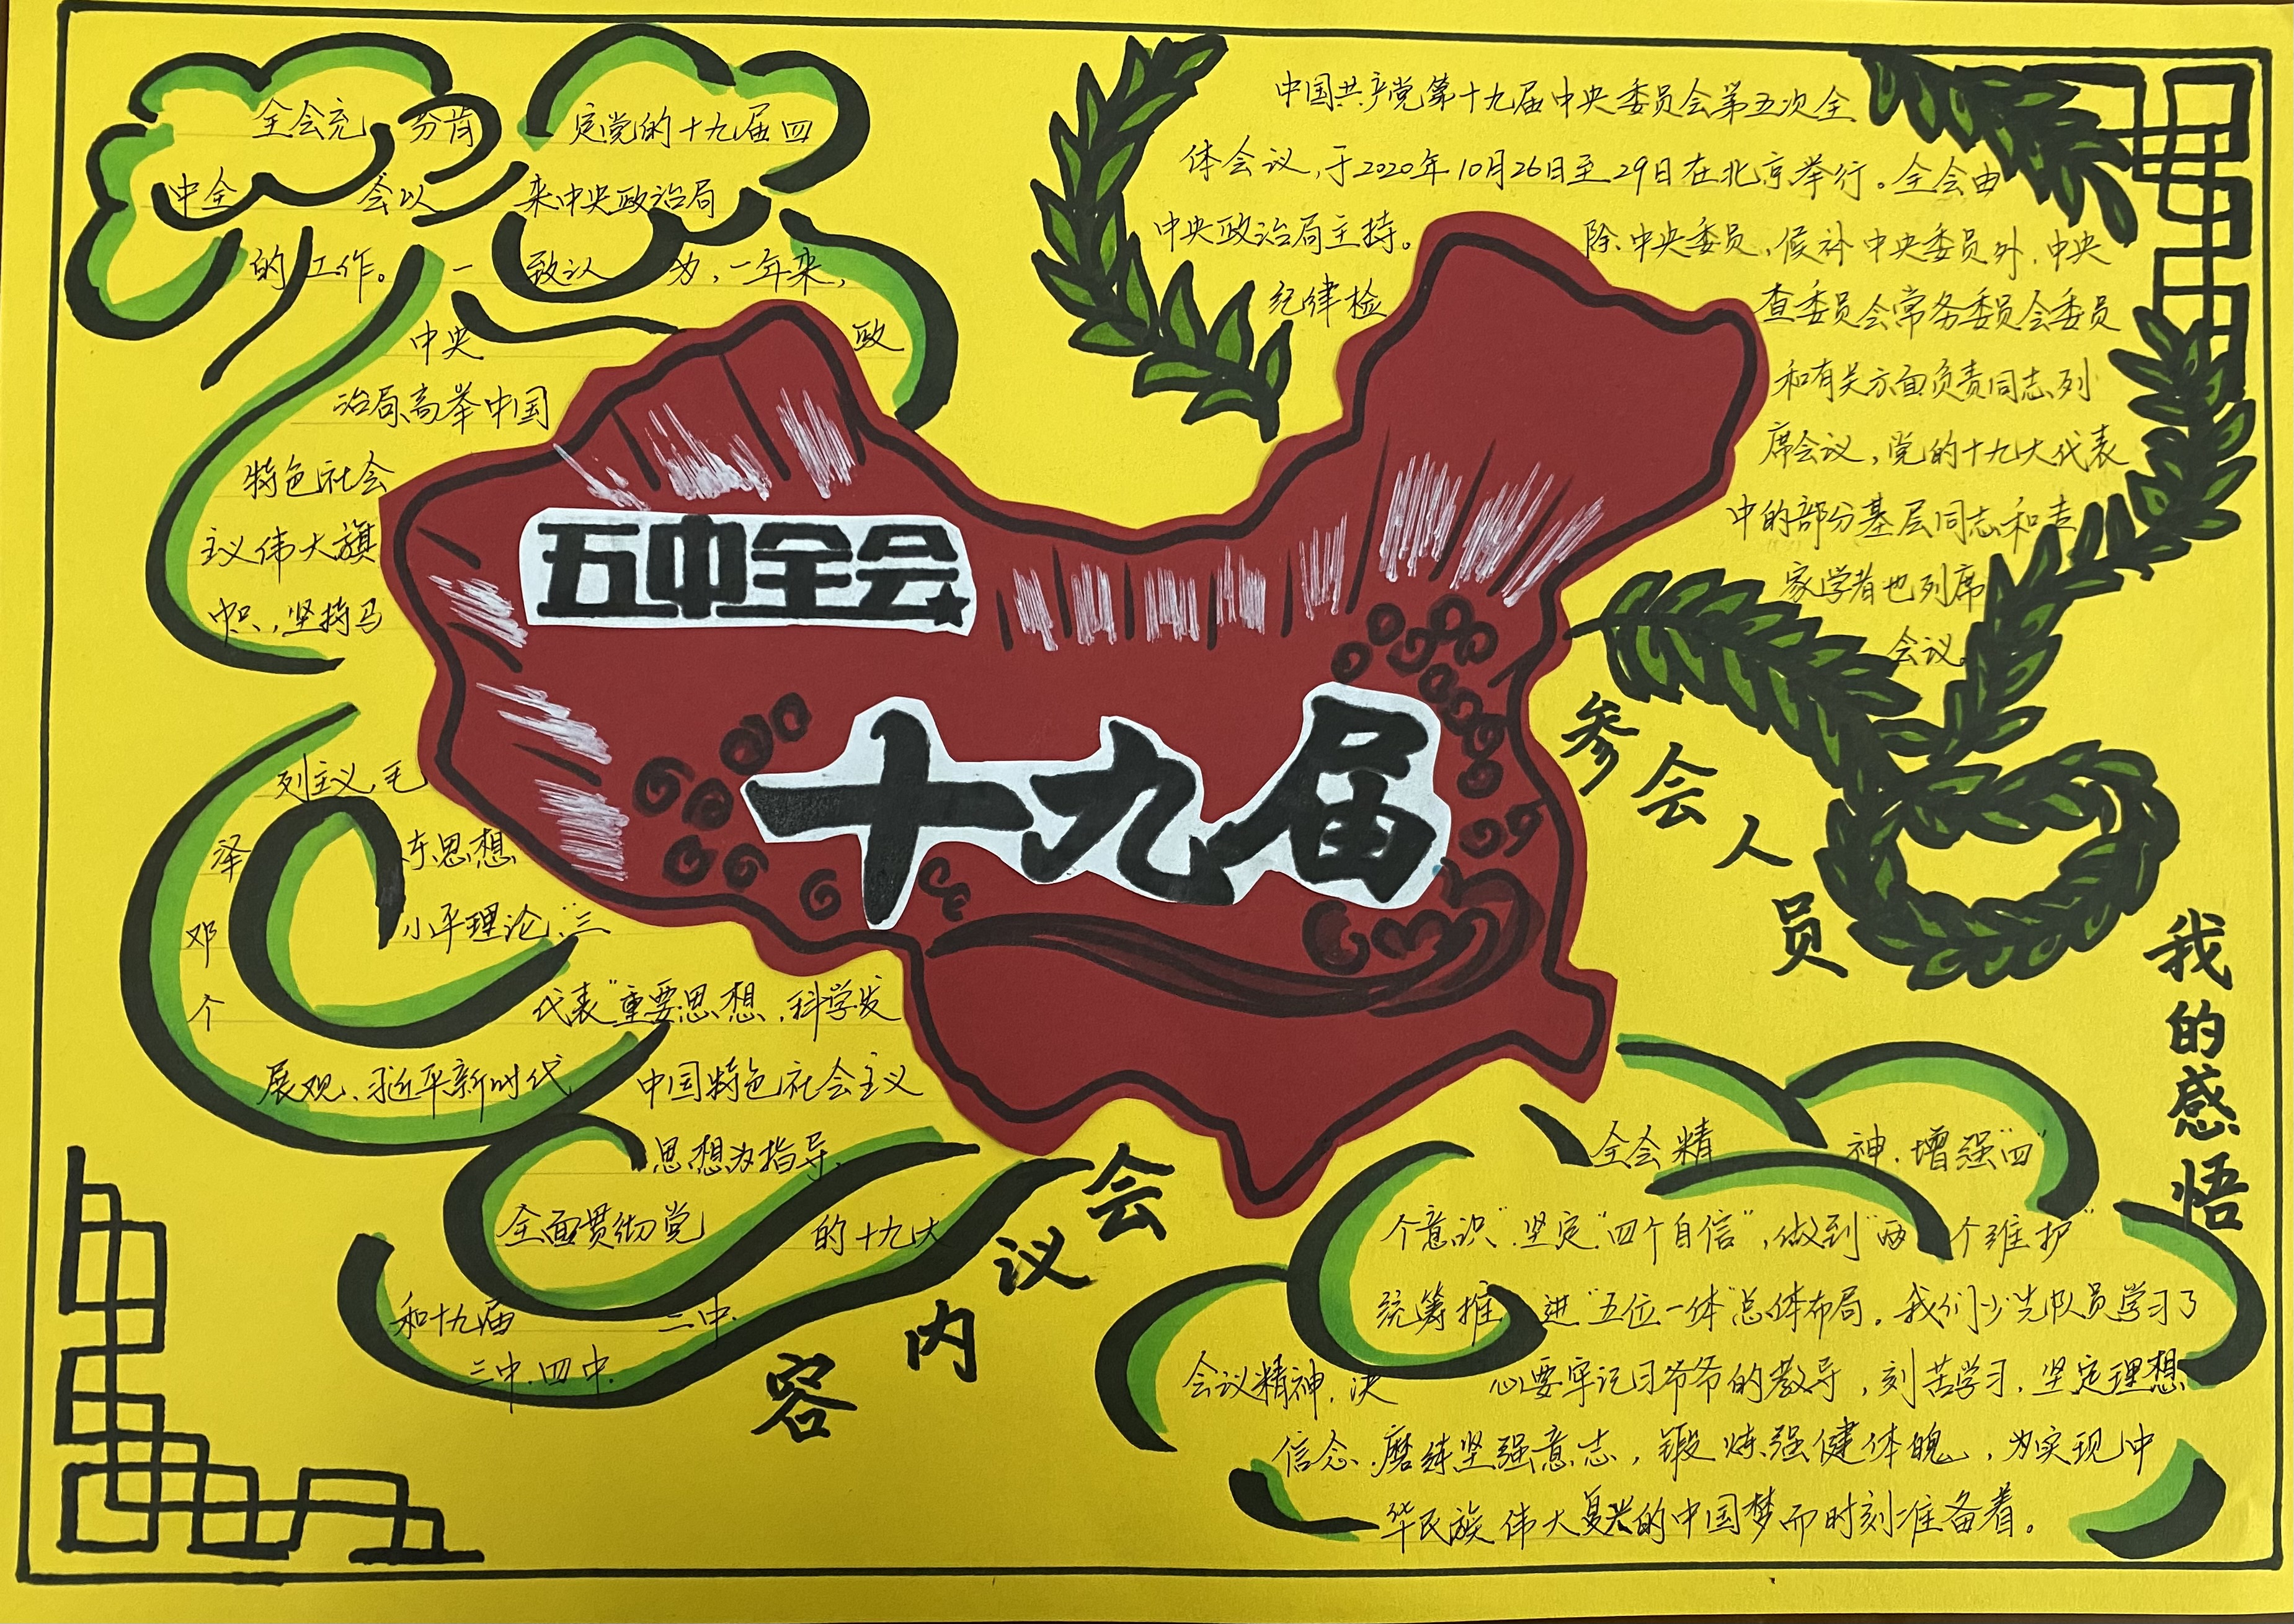 全会充分肯定党的十九届四
中全会以来中央政治局
的工作。一致认为,一年来,
中央政
治局高举中国
特色社会
主义伟大旗
帜,坚持马
列主义,毛
泽东思想
邓小平理论,“三
个代表”重要思想,科学发
展观、习近平新时代中国特色社会主义
思想为指导,
全面贯彻党的十九大
和十九届二中.
三中.四中.
会议内容
五中全会
十九届
中国共产党第十九届中央委员会第五次全
体会议,于2020年10月26日至29日在北京举行。全会由
中央政治局主持。除中央委员,候补中央委员外,中央
纪律检查委员会常务委员会委员
和有关方面负责同志列
席会议,党的十九大代表
中的部分基层同志和专
家学者也列席
会议
参会人员
我的感悟
全会精神.增强“四
个意识”.坚定“四个自信”,做到“两个维护”
统筹推进“五位一体”总体布局。我们少先队员学习了
会议精神,决心要牢记习爷爷的教导,刻苦学习.坚定理想
信念.磨练坚强意志,锻炼强健体魄,为实现中
华民族伟大复兴的中国梦而时刻准备着。